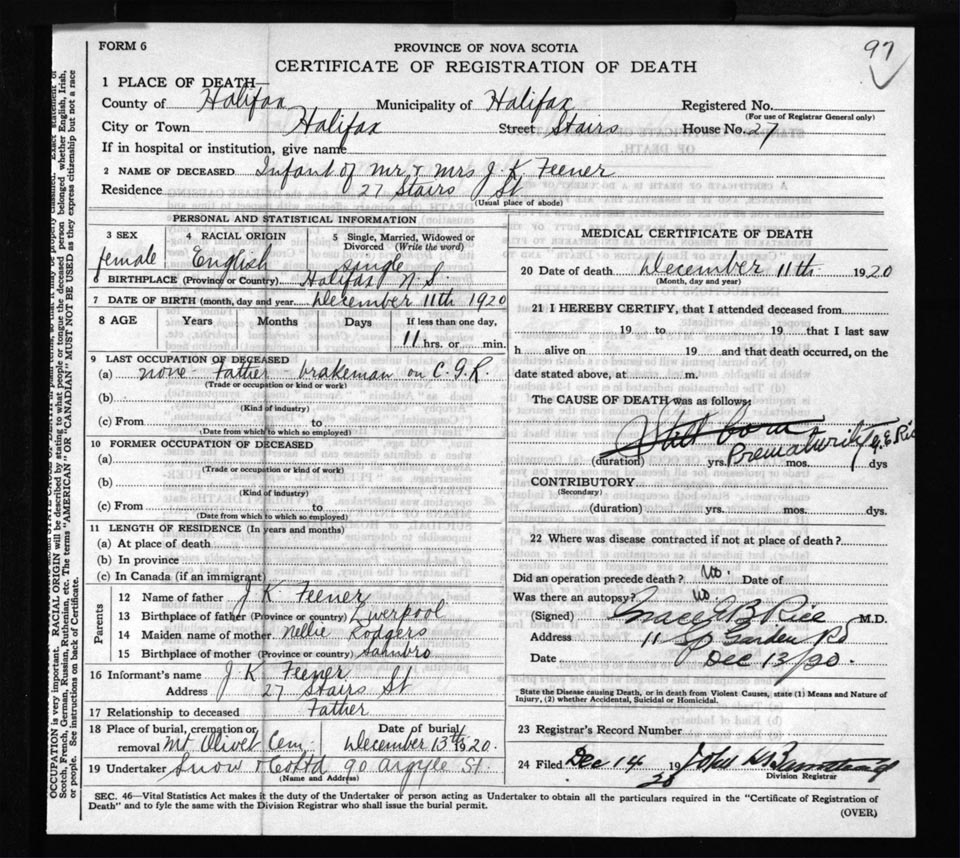 97
FORM 6
PROVINCE OF NOVA SCOTIA
CERTIFICATE OF REGISTRATION OF DEATH
1 PLACE OF DEATH—
County of Halifax Municipality of Halifax Registered No.
(For use of Registrar General only)
City or Town Halifax Street Stairs House No. 27
If in hospital or institution, give name
2 NAME OF DECEASED Infant of Mr & Mrs J. K. Feener
Residence 27 Stairs St
(Usual place of abode)
PERSONAL AND STATISTICAL INFORMATION
3 SEX 4 RACIAL ORIGIN 5 Single, Married, Widowed or Divorced (Write the word)
female English single
6 BIRTHPLACE (Province or Country) Halifax N. S.
7 DATE OF BIRTH (month, day and year) December 11th 1920
8 AGE Years Months Days If less than one day,
11 hrs. or min.
9 LAST OCCUPATION OF DECEASED
(a) none - Father - brakeman on C. G. R.
(Trade or occupation or kind of work)
(b)
(Kind of industry)
(c) From to
(Date from which to which so employed)
10 FORMER OCCUPATION OF DECEASED
(a)
(Trade or occupation or kind of work)
(b)
(Kind of industry)
(c) From to
(Date from which to which so employed)
11 LENGTH OF RESIDENCE (In years and months)
(a) At place of death
(b) In province
(c) In Canada (if an immigrant)
Parents
12 Name of father J. K. Feener
13 Birthplace of father (Province or country) Liverpool
14 Maiden name of mother Nellie Rodgers
15 Birthplace of mother (Province or country) Sambro
16 Informant's name J. K. Feener
Address 27 Stairs St
17 Relationship to deceased Father
18 Place of burial, cremation or Date of burial
removal Mt Olivet Cem. December 13th 1920.
19 Undertaker Snow & Co Ltd 90 Argyle St.
(Name and Address)
MEDICAL CERTIFICATE OF DEATH
20 Date of death December 11th 1920
(Month, day and year)
21 I HEREBY CERTIFY, that I attended deceased from
19 to 19 that I last saw
h alive on 19 and that death occurred, on the
date stated above, at m.
The CAUSE OF DEATH was as follows:
Still born
Prematurity G. E. Rice
(duration) yrs. mos. dys
CONTRIBUTORY
(Secondary)
(duration) yrs. mos. dys.
22 Where was disease contracted if not at place of death?
Did an operation precede death? No. Date of
Was there an autopsy? No
(Signed) Rice M.D.
Address 11 Garden Rd
Date Dec 13/20.
State the Disease causing Death, or in death from Violent Causes, state (1) Means and Nature of
Injury, (2) whether Accidental, Suicidal or Homicidal.
23 Registrar's Record Number
24 Filed Dec 14 1920 John
Division Registrar
SEC. 46—Vital Statistics Act makes it the duty of the Undertaker or person acting as Undertaker to obtain all the particulars required in the "Certificate of Registration of
Death" and to fyle the same with the Division Registrar who shall issue the burial permit.
(OVER)
OCCUPATION is very important. RACIAL ORIGIN will be described by stating to what people or tongue the deceased person belonged whether English, Irish,
Scotch, French, German, Russian, Ruthenian, etc. The terms "AMERICAN" OR "CANADIAN" MUST NOT BE USED as they express citizenship but not a race
or people. See instructions on back of Certificate.